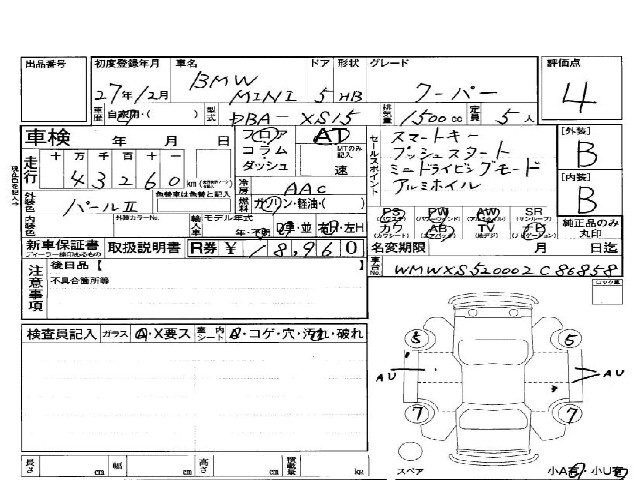 出品番号 初度登録年月 車名 ドア 形状 グレード 評価点
27年12月 BMW MINI 5 HB クーパー 4
車歴 自家用・( ) 型式 DBA-XS15 排気量 1500cc 定員 5人
車検 年 月 日 フロア コラム・ダッシュ AT MTのみ記入 速
走行 十 万 千 百 十 一
43260 km
冷房 AAC
燃料 ガソリン・軽油・( )
セールスポイント
スマートキー
プッシュスタート
ミニドライビングモード
アルミホイル
[外装] B
[内装] B
外装色 パールII 色替車は色替と記入
内装色 外装カラーNo. 輸入車 モデル年式 年・不明 D車・並 右・左H
PS PW AW SR (サンルーフ)
カワ (カワシート) AB (エアバッグ) TV ナビ (ナビゲーション)
純正品のみ丸印
新車保証書 取扱説明書 R券 ¥18,960 名変期限 月 日迄
ディーラー印のあるもの
注意事項 後日品【
不具合箇所等
車台No. WMWXS520002C86858
検査員記入 ガラス A・X要ス 室内シート コゲ・穴・汚れ・破れ
5 5
AU AU
7 7
長さ cm 幅 cm 高さ cm 積載量 kg
スペア 小A有・小U有